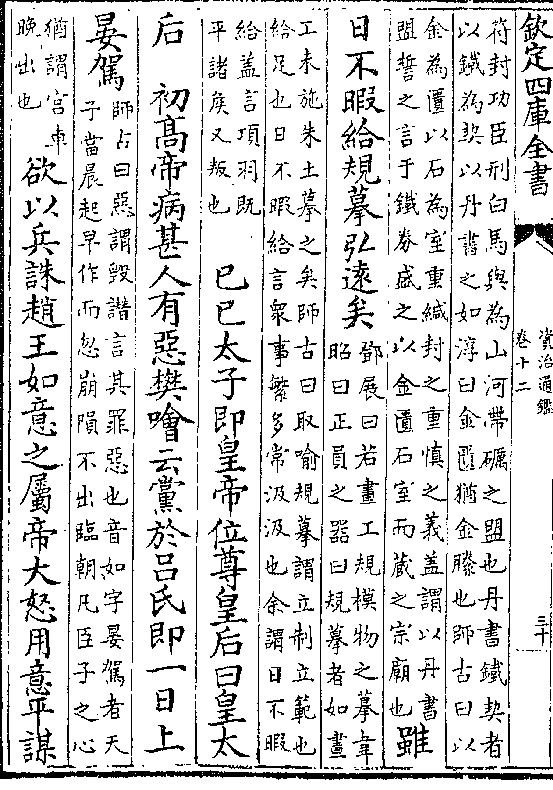 欽定四庫全書
資治通鑑
卷十二
三十
符封功臣刑白馬與為山河帶礪之盟也丹書鐵契者
以鐵為契以丹書之如淳曰金匱猶金縢也師古曰以
金為匱以石為室重緘封之重慎之義盖謂以丹書
盟誓之言于鐵劵盛之以金匱石室而藏之宗廟也
雖
日不暇給規摹弘遠矣
鄧展曰若畫工規模物之摹韋
昭曰正員之器曰規摹者如畫
工未施朱土摹之矣師古曰取喻規摹謂立制立範也
給足也日不暇給言衆事繁多常汲汲也余謂日不暇
給盖言項羽既
平諸矦又叛也
已已太子即皇帝位尊皇后曰皇太
后 初髙帝病甚人有惡樊噲云黨於呂氏即一日上
晏駕
師古曰惡謂毀譖言其罪惡也音如字晏駕者天
子當晨起早作而忽崩隕不出臨朝凡臣子之心
猶謂宫車
晚出也
欲以兵誅趙王如意之屬帝大怒用意平謀